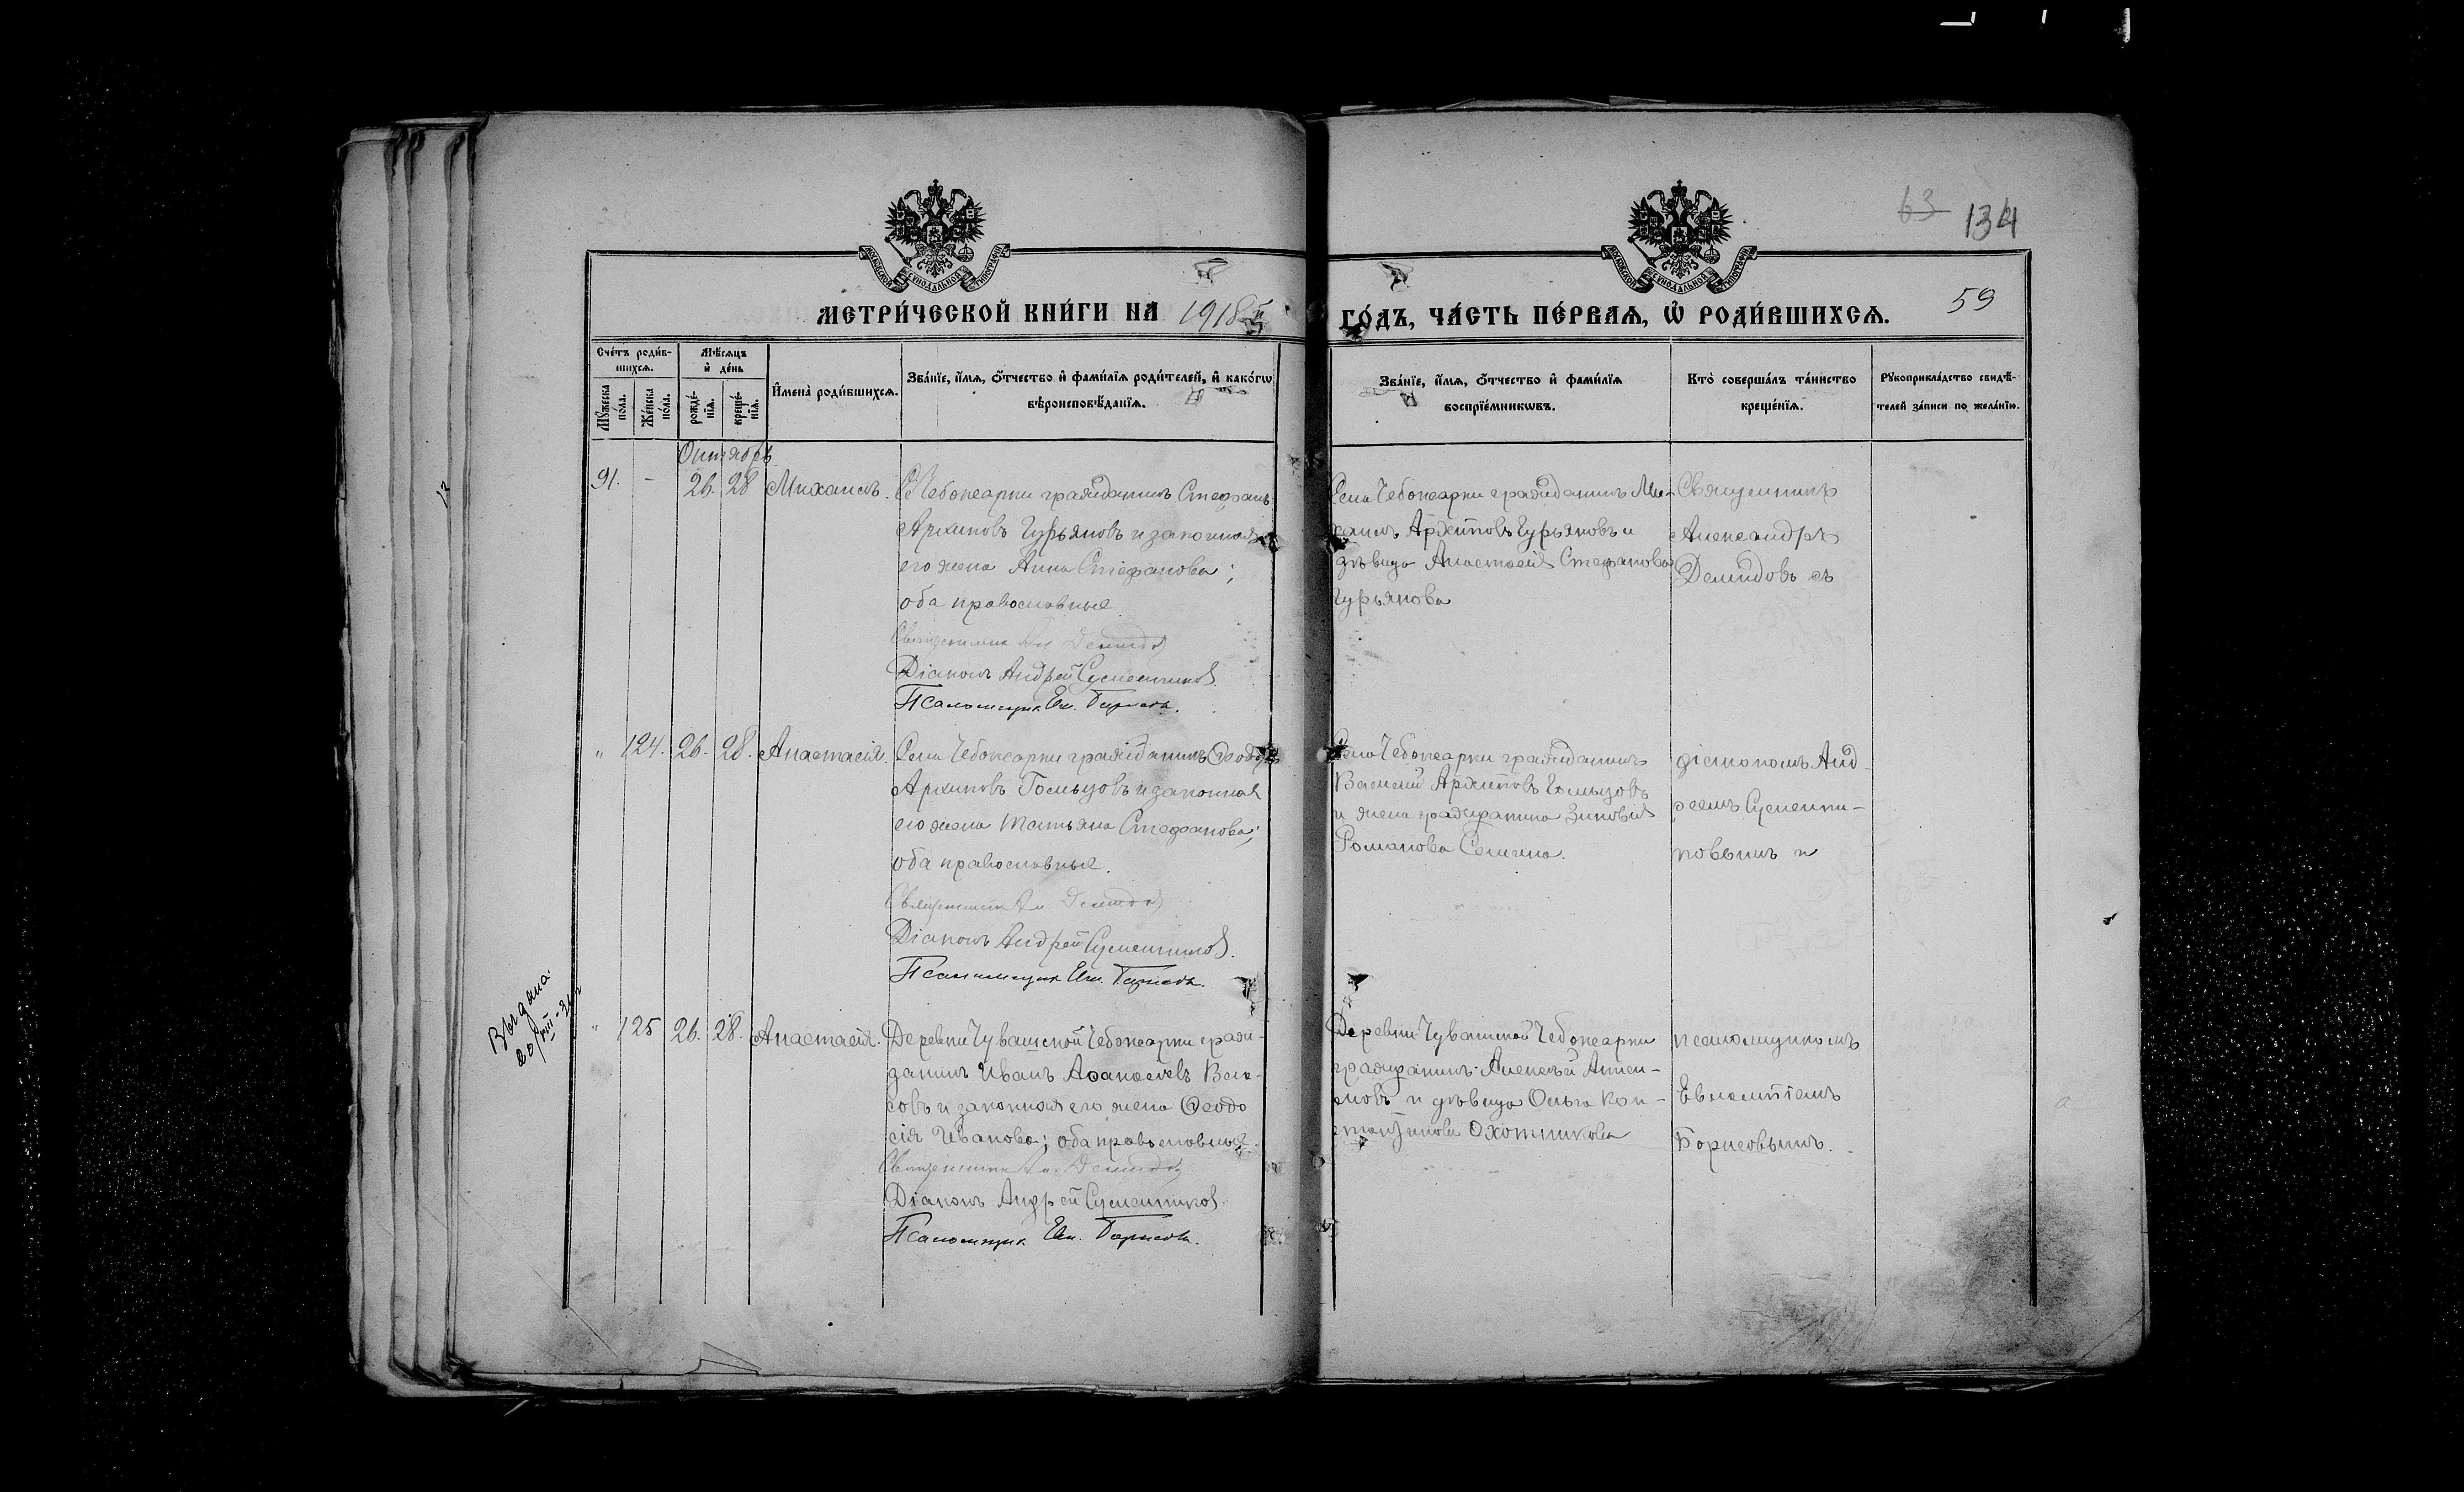 63 134
МОСКОВСКОЙ СУНОДАЛЬНОЙ ТИПОГРАФІИ
МОСКОВСКОЙ СУНОДАЛЬНОЙ ТИПОГРАФІИ
МЕТРИ́ЧЕСКОЙ КНИ́ГИ НА 1918й
ГО́ДЪ, ЧА́СТЬ ПЕ́РВАѦ, Ѽ РОДИ́ВШИХСѦ.
59
Сче́тъ роди́в-
шихсѧ.
Мꙋ́жеска по́ла.
Же́нска по́ла.
Мѣ́сѧцъ
и҆ де́нь
рожде́-нїѧ.
креще́-нїѧ.
И҆мена̀ роди́вшихсѧ.
Зва́нїе, и҆́мѧ, ѻ҆́тчество и҆ фами́лїѧ роди́телей, и҆ како́гѡ
вѣроисповѣ́данїѧ.
Зва́нїе, и҆́мѧ, ѻ҆́тчество и҆ фами́лїѧ
воспрїе́мникѡвъ.
Кто̀ соверша́лъ та́инство
креще́нїѧ.
Рꙋкоприкла́дство свидѣ́-
телей за́писи по жела́нїю.
Октябрь
91. - 26. 28 Михаилъ.
С. Чебоксарки гражданинъ Стефанъ
Архиповъ Гурьяновъ и законная
его жена Анна Стефанова;
оба православные
Священник Ал Демидов
Діаконъ Андрей Сусленников
Псаломщик Евл. Борисовъ.
Села Чебоксарки гражданинъ Ми-
хаилъ Архиповъ Гурьяновъ и
дѣвица Анастасія Стефанова
Гурьянова
Священникъ
Александръ
Демидовъ съ
" 124. 26. 28. Анастасія.
Села Чебоксарки гражданинъ Ѳеодоръ
Архиповъ Гольцовъ и законная
его жена Татьяна Стефанова;
оба православные.
Священник Ал Демидов
Діаконъ Андрей Сусленников.
Псаломщик Евл. Борисовъ.
Села Чебоксарки гражданинъ
Василій Архиповъ Гольцовъ
и жена гражданина Зиновія
Романова
діакономъ Анд-
реемъ Сусленни-
ковымъ и
Выдана
20/VIII-
" 125 26. 28. Анастасія.
Деревни Чувашской Чебоксарки граж-
данинъ Иванъ Аѳанасіевъ
и законная его жена Ѳеодо
сія Иванова; оба православные.
Священник Ал. Демидов
Діаконъ Андрей Сусленников.
Псаломщик Евл. Борисовъ.
Деревни Чувашской Чебоксарки
гражданинъ Алексѣй
и дѣвица Ольга Кон-
стантинова Охотникова
псаломщикомъ
Евлампіемъ
Борисовымъ.